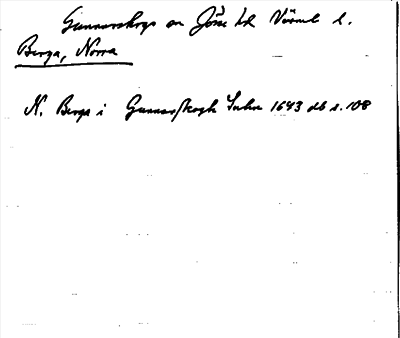 Gunnarskogs sn Jösse hd Värml l.
Berga, Norra
N. Berga i Gunnarskogh Sochn 1643 db s. 108